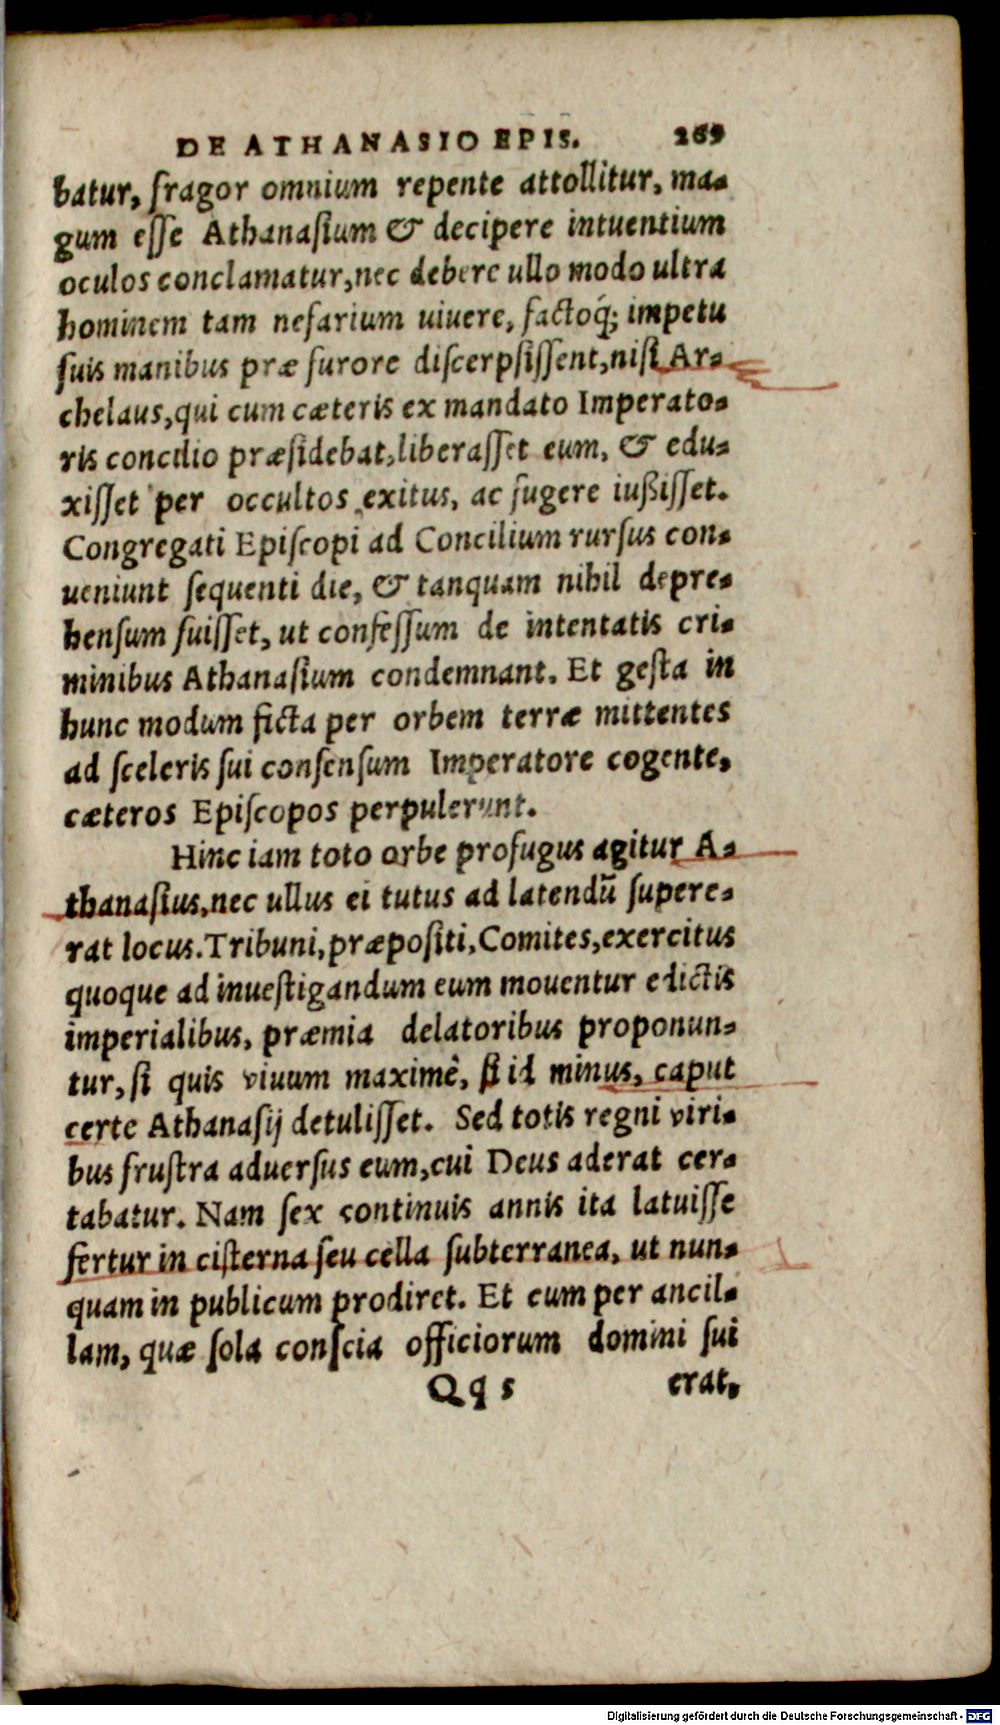 DE ATHANASIO EPIS. 269
batur, fragor omnium repente attollitur, ma-
gum esse Athanasium & decipere intuentium
oculos conclamatur, nec debere ullo modo ultra
hominem tam nefarium uiuere, factoq́; impetu
suis manibus præ furore discerpsissent, nisi Ar-
chelaus, qui cum cæteris ex mandato Imperato-
ris concilio præsidebat, liberasset eum, & edu-
xisset per occultos exitus, ac fugere iußisset.
Congregati Episcopi ad Concilium rursus con-
ueniunt sequenti die, & tanquam nihil depre-
hensum fuisset, ut confessum de intentatis cri-
minibus Athanasium condemnant. Et gesta in
hunc modum ficta per orbem terræ mittentes
ad sceleris sui consensum Imperatore cogente,
cæteros Episcopos perpulerunt.
Hinc iam toto orbe profugus agitur A-
thanasius, nec ullus ei tutus ad latendū supere-
rat locus. Tribuni, præpositi, Comites, exercitus
quoque ad inuestigandum eum mouentur edictis
imperialibus, præmia delatoribus proponun-
tur, si quis viuum maximè, si id minus, caput
certe Athanasij detulisset. Sed totis regni viri-
bus frustra aduersus eum, cui Deus aderat cer-
tabatur. Nam sex continuis annis ita latuisse
fertur in cisterna seu cella subterranea, ut nun-
quam in publicum prodiret. Et cum per ancil-
lam, quæ sola conscia officiorum domini sui
Qq 5 erat,
Digitalisierung gefördert durch die Deutsche Forschungsgemeinschaft - DFG